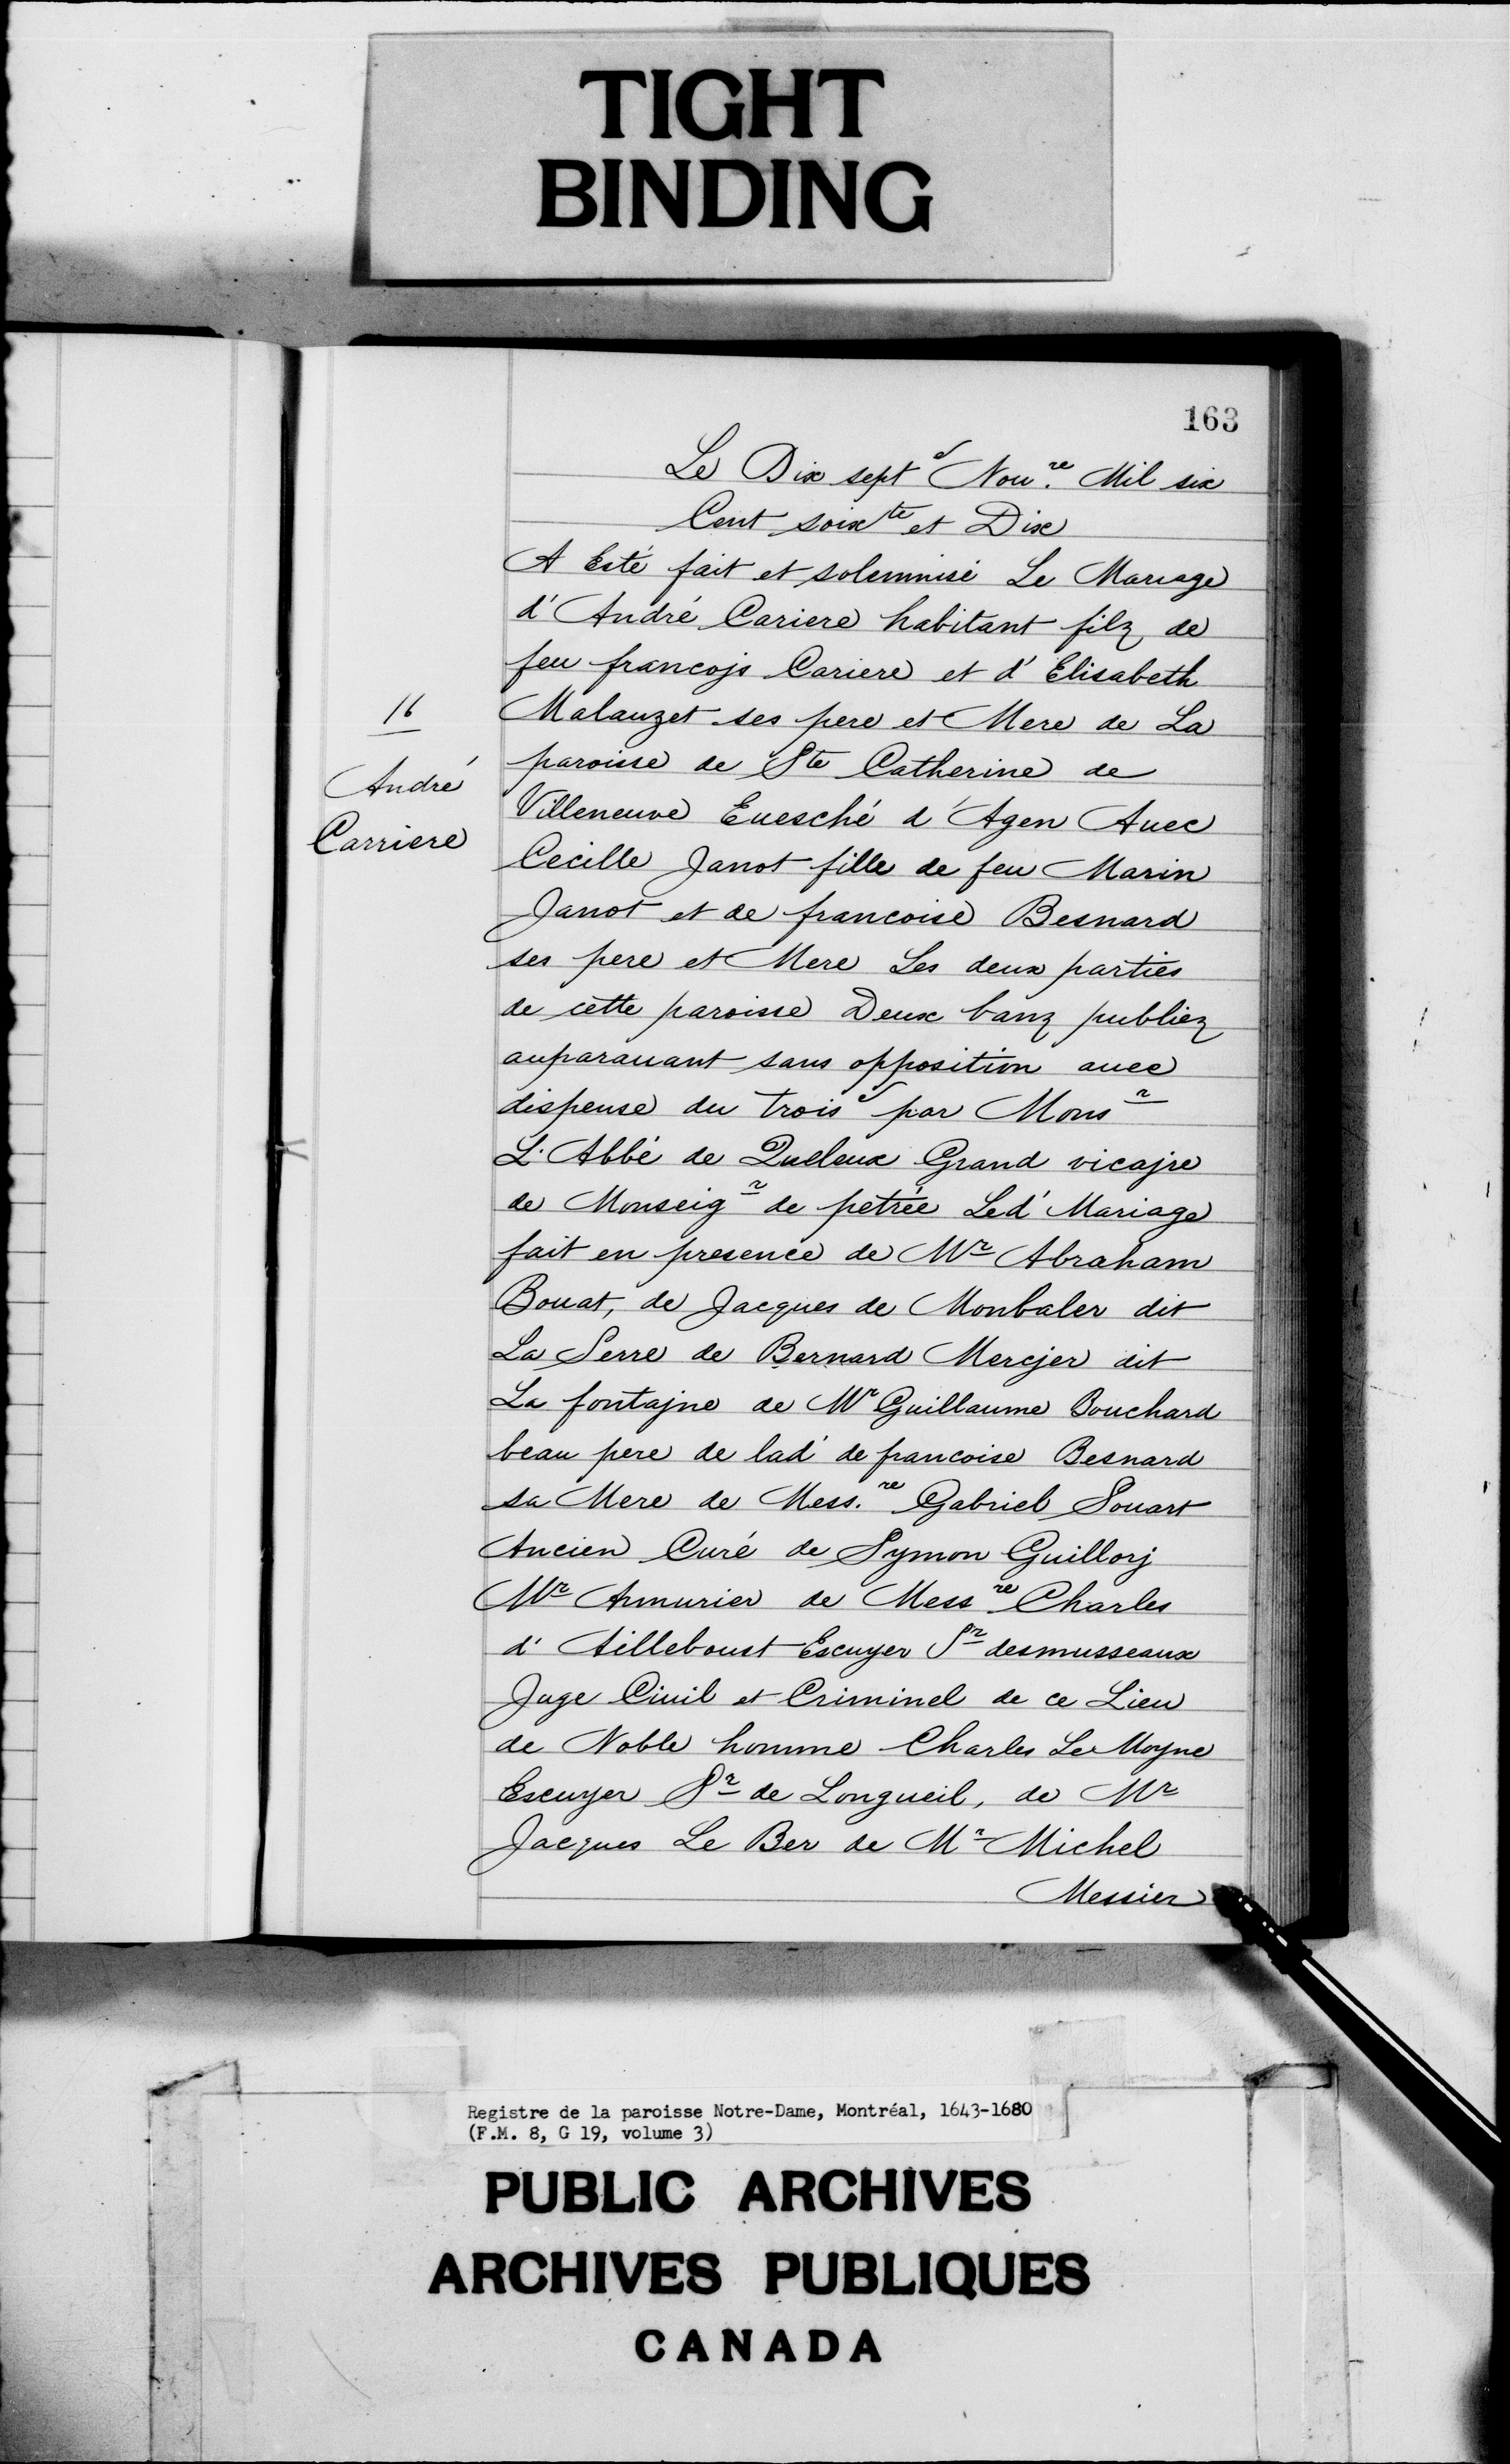 TIGHT
BINDING
163
Le Dix sept e Nou.re Mil six
Cent soixte et Dix
A Esté fait et solemnisé Le Mariage
d'André Cariere habitant filz de
feu francojs Cariere et d'Elisabeth
16
Malauzet ses pere et Mere de La
paroisse de Ste Catherine de
André
Villeneuve Euesché d'Agen Auec
Carriere
Cecille Janot fille de feu Marin
Janot et de francoise Besnard
ses pere et Mere Les deux parties
de cette paroisse Deux banz publiez
auparauant sans opposition auec
dispense du trois e par Monsr
L'Abbé de Queleux Grand vicajre
de Monseigr de petrée Led' Mariage
fait en presence de Mr Abraham
Bouat, de Jacques de Monbaler dit
La Serre de Bernard Mercjer dit
La fontajne de Mr Guillaume Bouchard
beau pere de lad' de francoise Besnard
sa Mere de Mess.re Gabriel Souart
Ancien Curé de Symon Guillorj
Mr Armurier de Messre Charles
d'Ailleboust Escuyer Sr desmusseaux
Juge Ciuil et Criminel de ce Lieu
de Noble homme Charles Le Moyne
Escuyer Sr de Longueil, de Mr
Jacques Le Ber de Mr Michel
Messier
Registre de la paroisse Notre-Dame, Montréal, 1643-1680
(F.M. 8, G 19, volume 3)
PUBLIC ARCHIVES
ARCHIVES PUBLIQUES
CANADA